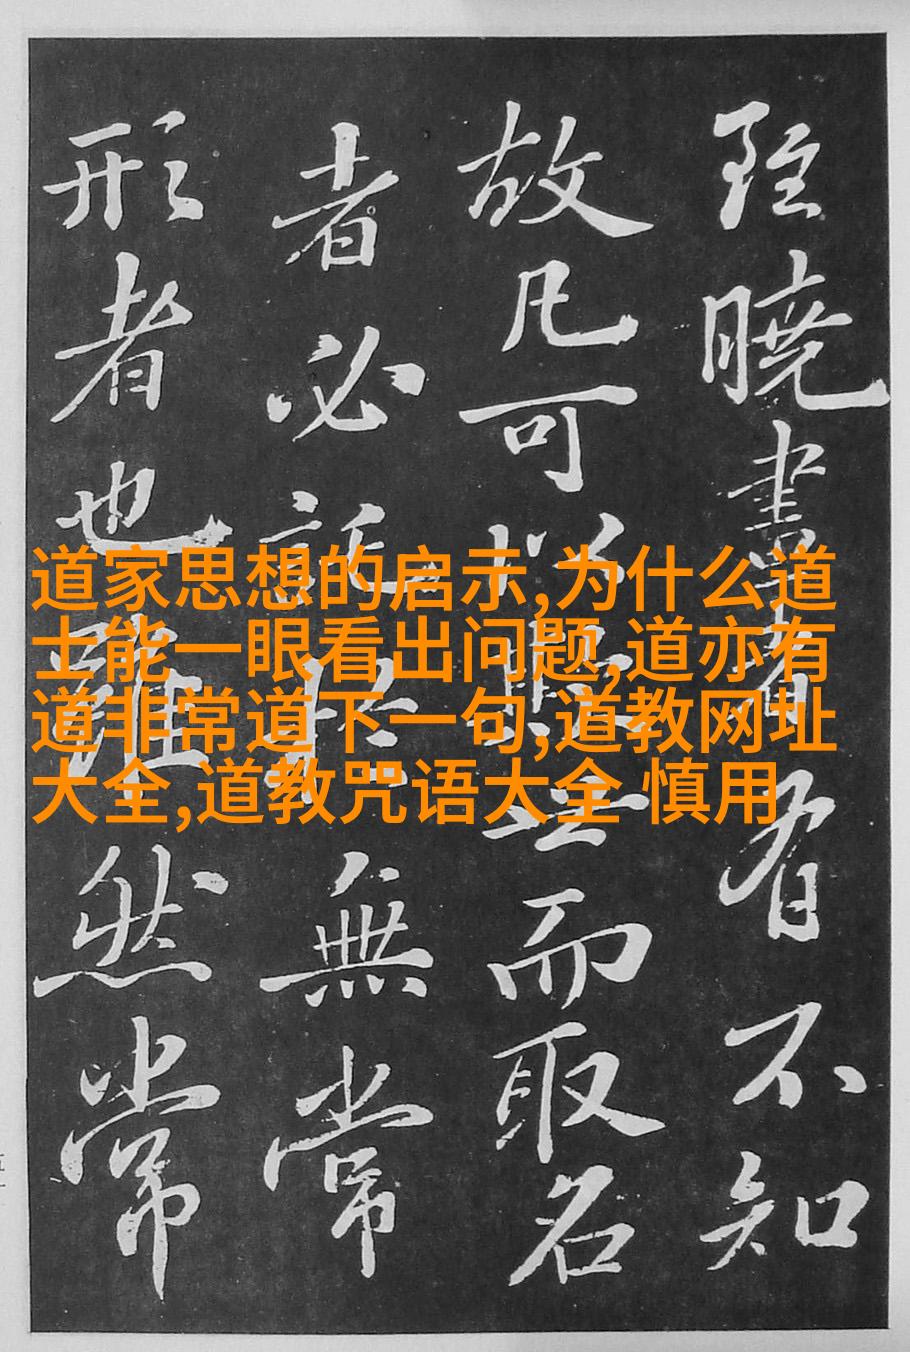 道家思想的启示,为什么道
士能一眼看出问题,道亦有
道非常道下一句,道教网址
大全,道教咒语大全 慎用
雖曉畫者有不知
故凡可以欺世而取名
者必託於無常
形者也雖然常